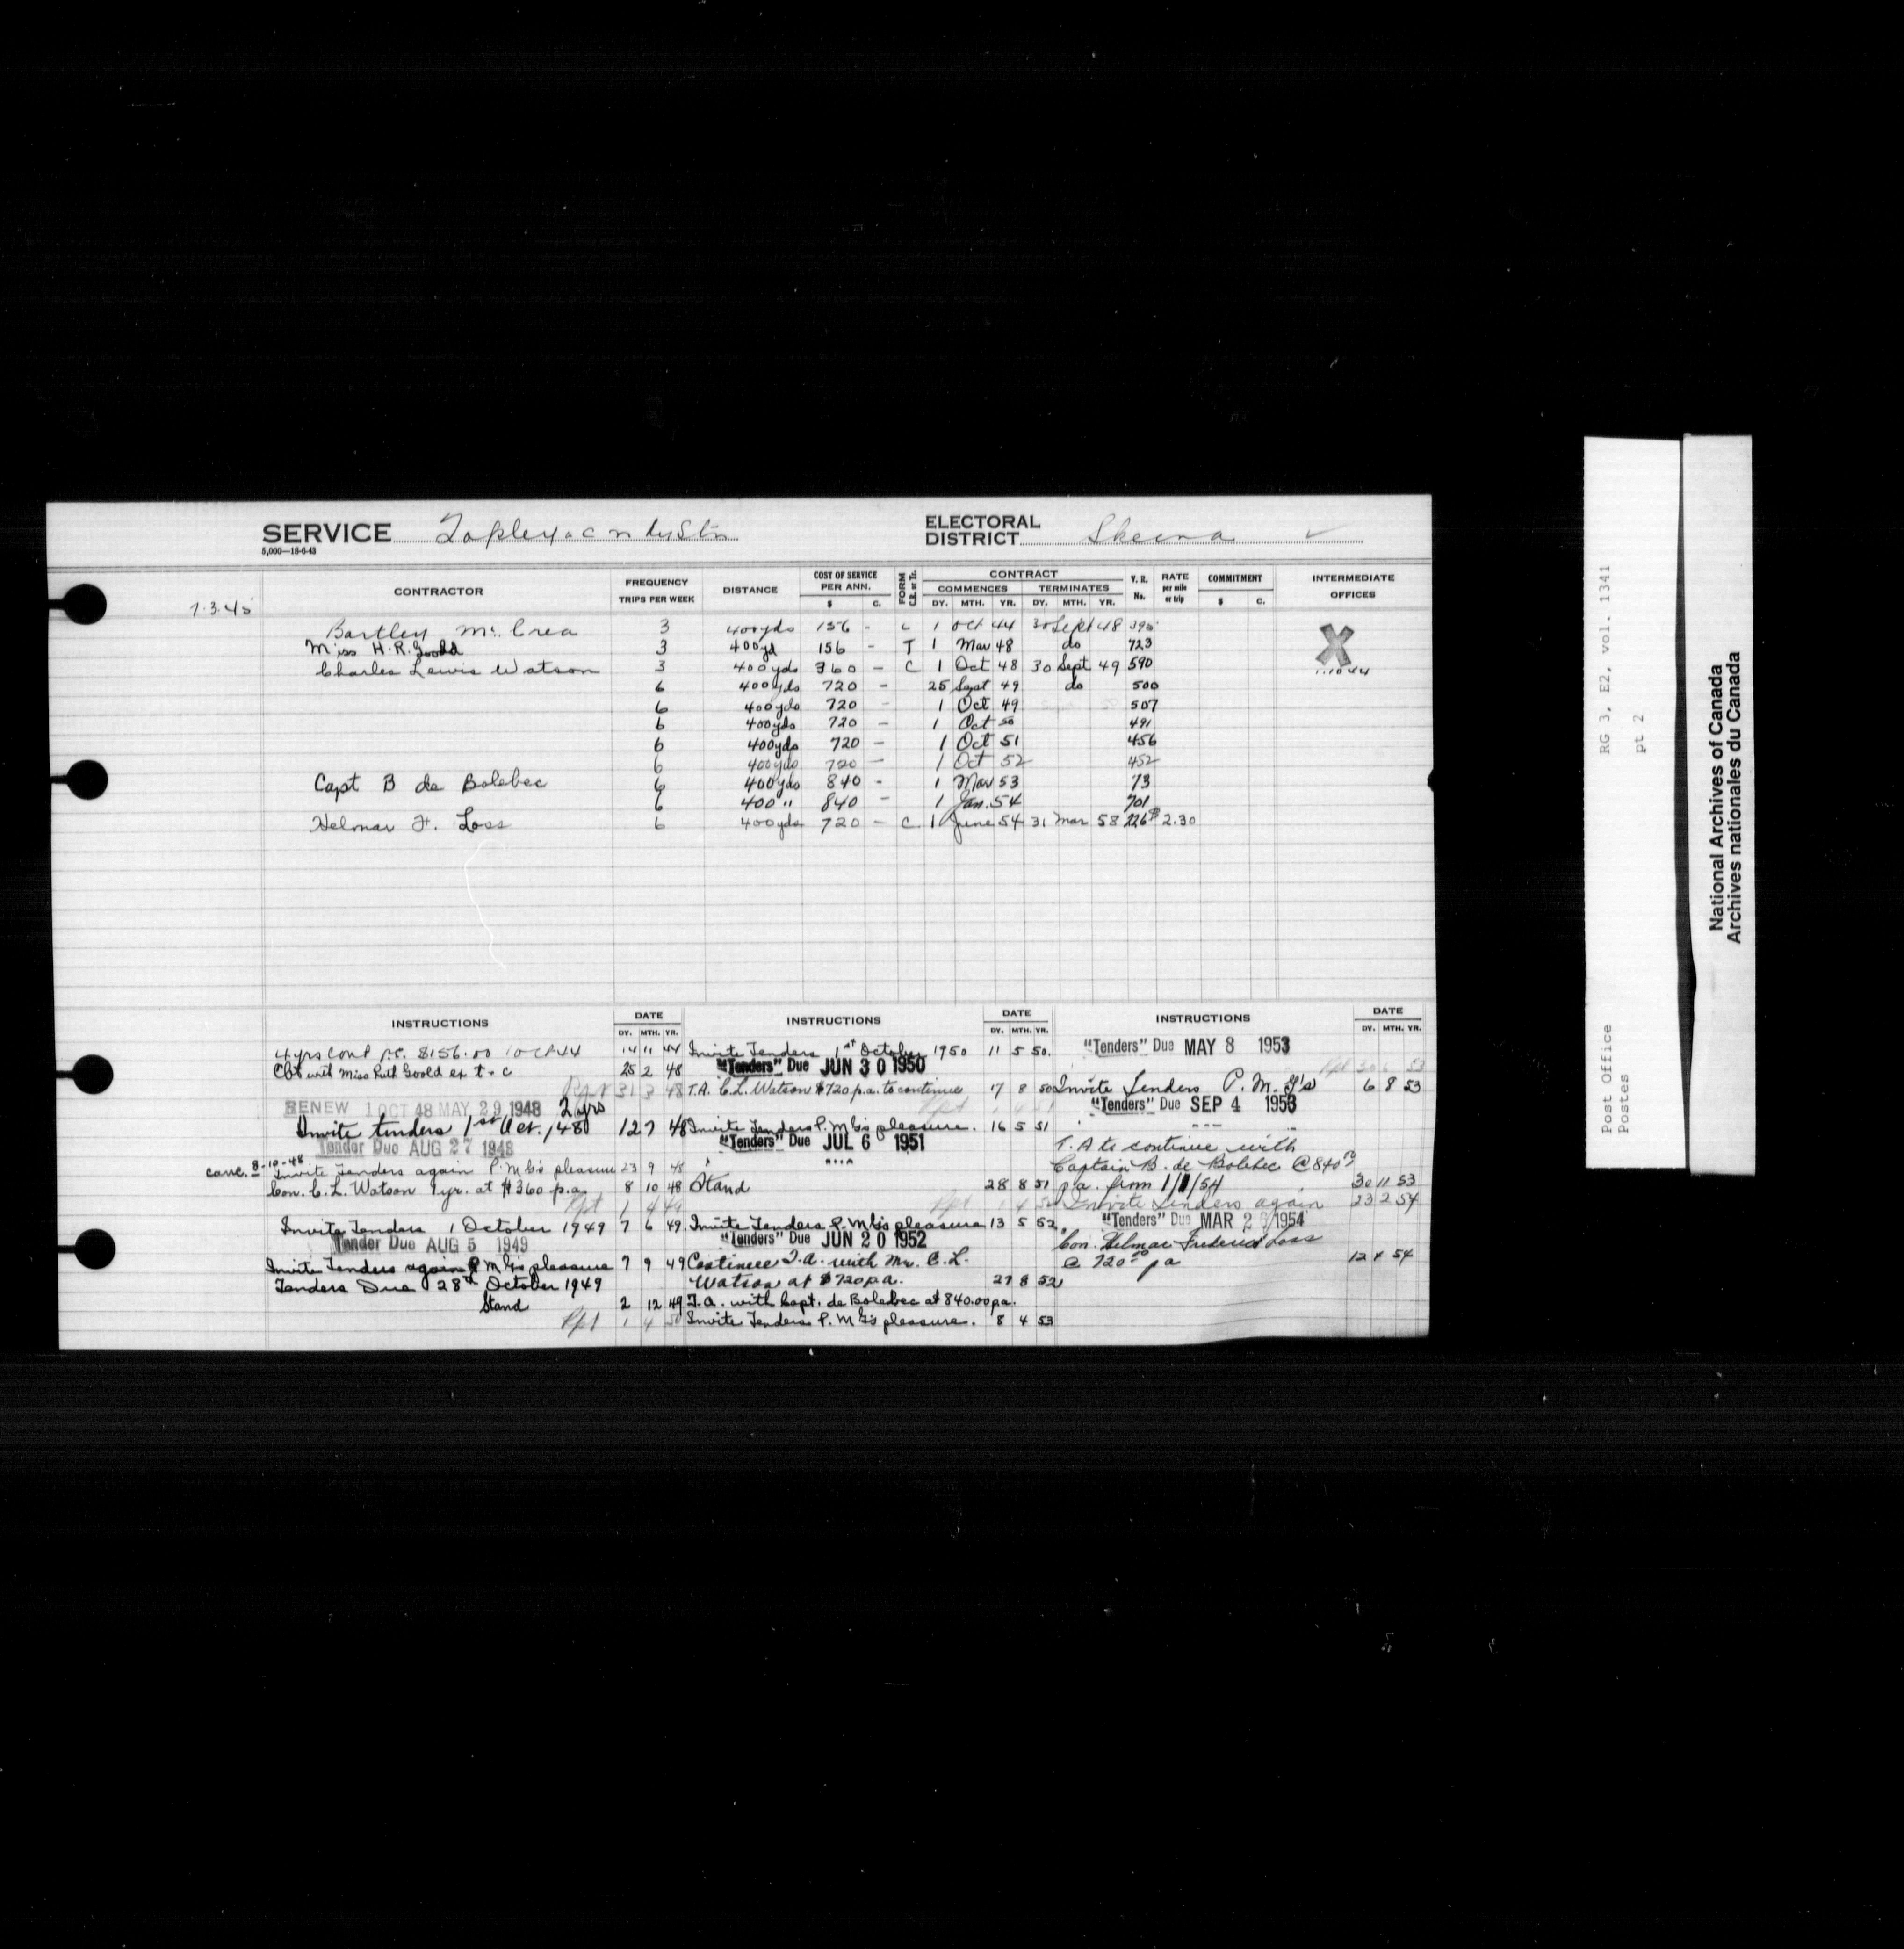 SERVICE Topley & C N Ry Stn
ELECTORAL DISTRICT Skeena ✓
5,000—18-6-43
CONTRACTOR FREQUENCY TRIPS PER WEEK DISTANCE COST OF SERVICE PER ANN. $ C. FORM C.R. or Tr. CONTRACT COMMENCES DY. MTH. YR. TERMINATES DY. MTH. YR. V. R. No. RATE per mile or trip COMMITMENT $ C. INTERMEDIATE OFFICES
7.3.45
Bartley McCrea 3 400yds 156 - C 1 Oct 44 30 Sept 48 395
Miss H.R. Goold 3 400yd 156 - T 1 Mar 48 do 723
Charles Lewis Watson 3 400yds 360 - C 1 Oct 48 30 Sept 49 590
1.10.44
6 400yds 720 - 25 Sept 49 do 500
6 400yds 720 - 1 Oct 49 507
6 400yds 720 - 1 Oct 50 491
6 400yds 720 - 1 Oct 51 456
6 400yds 720 - 1 Oct 52 452
Capt B de Bolebec 6 400yds 840 - 1 Mar 53 73
6 400 " 840 - 1 Jan. 54 701
Helmar F. Loss 6 400yds 720 - C 1 June 54 31 Mar 58 226 $2.30
INSTRUCTIONS DATE DY. MTH. YR.
4 yrs Cont p.c. $156.00 1 Oct 44 14 11 44
Cbt with Miss Ruth Goold ex t.c 25 2 48
Rpt 31 3 48
RENEW 1 OCT 48 MAY 29 1948 2 yrs
Invite tenders 1st Oct. /48 12 7 48
Tender Due AUG 27 1948
canc. 8-10-48
Invite Tenders again P.M.G's pleasure 23 9 48
Con. C.L. Watson 1 yr. at $360 p.a. 8 10 48
Rpt 1 4 49
Invite Tenders 1 October 1949 7 6 49
Tender Due AUG 5 1949
Invite Tenders again P.M.G's pleasure 7 9 49
Tenders Due 28th October 1949
Stand 2 12 49
Rpt 1 4 50
INSTRUCTIONS DATE DY. MTH. YR.
Invite Tenders 1st October 1950 11 5 50.
"Tenders" Due JUN 30 1950
T.A. C.L. Watson $720 p.a. to continue 17 8 50
Rpt 1 4 51
Invite Tenders P.M.G's pleasure. 16 5 51
"Tenders" Due JUL 6 1951
Stand 28 8 51
Rpt 1 4 52
Invite Tenders P.M.G's pleasure 13 5 52
"Tenders" Due JUN 20 1952
Continue T.A. with Mr. C.L.
Watson at $720 p.a. 27 8 52
T.A. with Capt. de Bolebec at 840.00 pa.
Invite Tenders P.M.G's pleasure. 8 4 53
INSTRUCTIONS DATE DY. MTH. YR.
"Tenders" Due MAY 8 1953
Rpt 30 6 53
Invite Tenders P.M.G's 6 8 53
"Tenders" Due SEP 4 1953
T.A to continue with
Captain B. de Bolebec @ 840.00
p.a. from 1/1/54 30 11 53
Invite tenders again 23 2 54
"Tenders" Due MAR 26 1954
Con. Helmar Frederick Loss
@ 720.00 pa 12 4 54
Post Office RG 3, E2, vol. 1341
Postes pt 2
National Archives of Canada
Archives nationales du Canada